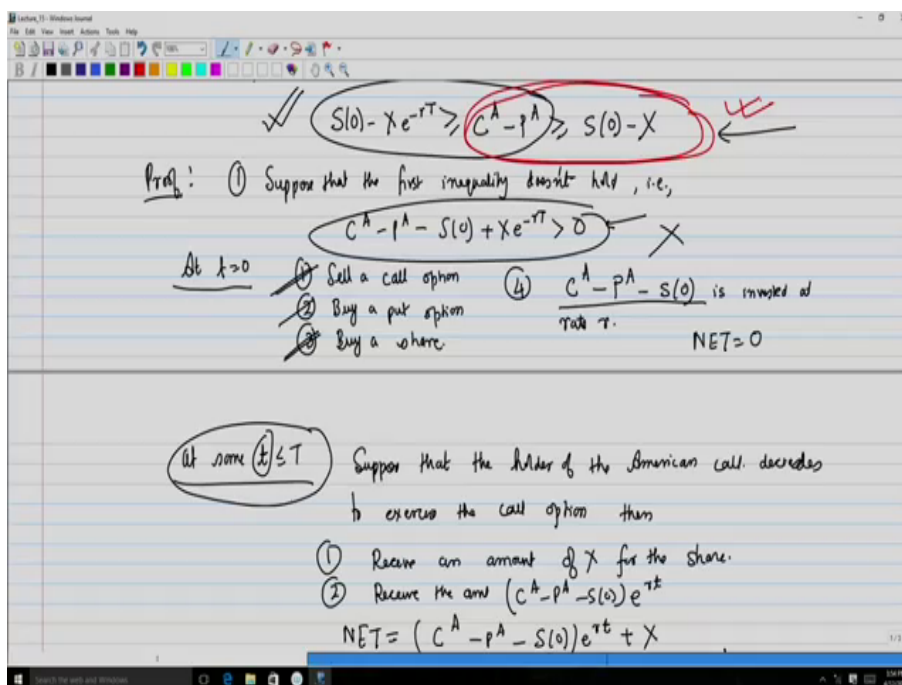 Lecture_15 - Windows Journal
File Edit View Insert Actions Tools Help
S(0) - Xe^{-rT} ≥ C^A - P^A ≥ S(0) - X
Proof: ① Suppose that the first inequality doesn't hold, i.e.,
C^A - P^A - S(0) + Xe^{-rT} > 0 X
At t=0 ① Sell a call option ④ C^A - P^A - S(0) is invested at
② Buy a put option rate r.
③ Buy a share. NET = 0
At some t ≤ T Suppose that the holder of the American call decides
to exercise the call option then
① Receive an amount of X for the share.
② Receive the amt (C^A - P^A - S(0)) e^{rt}
NET = (C^A - P^A - S(0)) e^{rt} + X
1/2
Search the web and Windows